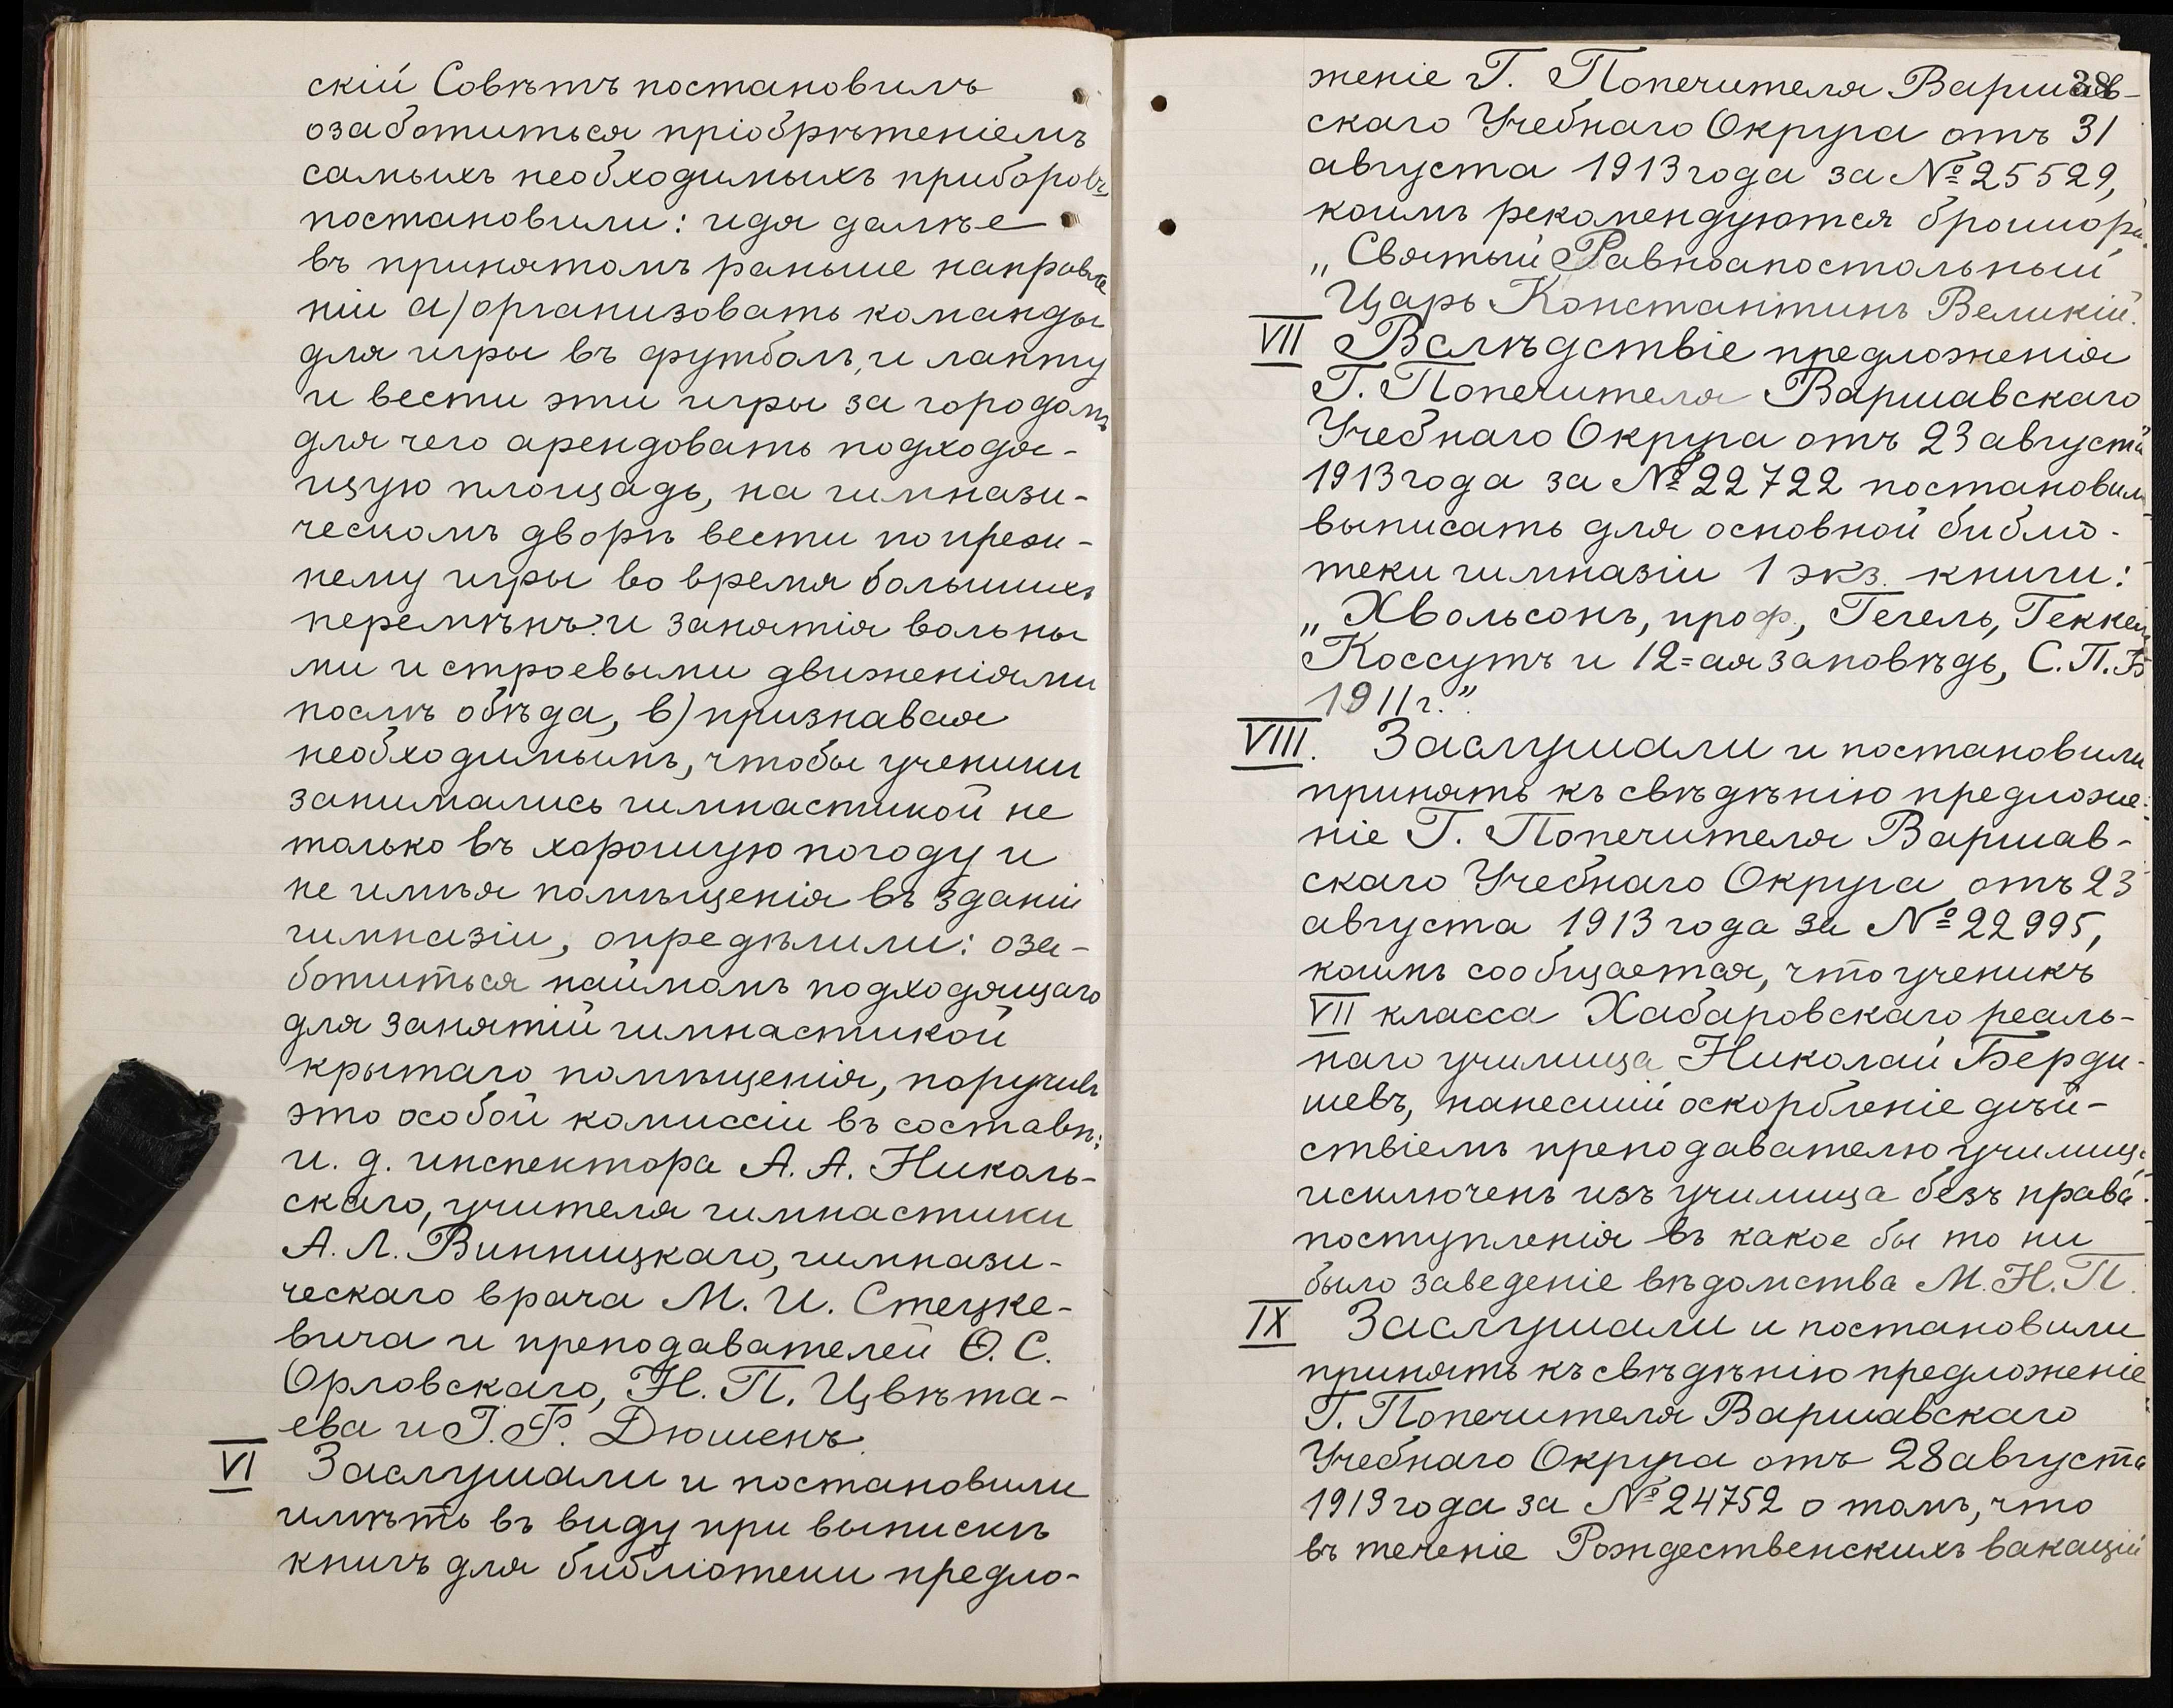 скій Совѣтъ постановилъ
озаботиться пріобрѣтеніемъ
самыхъ необходимыхъ приборовъ,
постановили: идя далѣе
въ принятомъ раньше направле
ніи а) организовать команды
для игры въ футболъ, и лапту
и вести эти игры за городомъ
для чего арендовать подходя-
щую площадь, на гимнази-
ческомъ дворѣ вести по преж-
нему игры во время большихъ
перемѣнъ и занятія вольны
ми и строевыми движеніями
послѣ обѣда, в) признавая
необходимымъ, чтобы ученики
занимались гимнастикой не
только въ хорошую погоду и
не имѣя помѣщенія въ зданіи
гимназіи, опредѣлили: оза-
ботиться наймомъ подходящаго
для занятій гимнастикой
крытаго помѣщенія, поручивъ
это особой комиссіи въ составѣ:
и. д. инспектора А. А. Николь-
скаго, учителя гимнастики
А. Л. Винницкаго, гимнази-
ческаго врача М. И. Стецке-
вича и преподавателей Ѳ. С.
Орловскаго, Н. П. Цвѣта-
ева и Г. Ф. Дюшенъ.
VI Заслушали и постановили
имѣть въ виду при выпискѣ
книгъ для библіотеки предло-
38
женіе Г. Попечителя Варшав-
скаго Учебнаго Округа отъ 31
августа 1913 года за № 25529,
коимъ рекомендуются брошюры
„Святый Равноапостольный
Царь Константинъ Великій.
VII Вслѣдствіе предложенія
Г. Попечителя Варшавскаго
Учебнаго Округа отъ 23 августа
1913 года за № 22722 постановили
выписать для основной библіо-
теки гимназіи 1 экз. книги:
„Хвольсонъ, проф., Гегель, Геккель
Коссутъ и 12=ая заповѣдь, С.П.Б
1911 г.".
VIII. Заслушали и постановили
принять къ свѣдѣнію предложе-
ніе Г. Попечителя Варшав-
скаго Учебнаго Округа отъ 23
августа 1913 года за № 22995,
коимъ сообщается, что ученикъ
VII класса Хабаровскаго реаль-
наго училища Николай Берди-
шевъ, нанесшій оскорбленіе дѣй-
ствіемъ преподавателю училища
исключенъ изъ училища безъ права
поступленія въ какое бы то ни
было заведеніе вѣдомства М. Н. П.
IX Заслушали и постановили
принять къ свѣдѣнію предложеніе
Г. Попечителя Варшавскаго
Учебнаго Округа отъ 28 августа
1913 года за № 24752 о томъ, что
въ теченіе Рождественскихъ вакацій